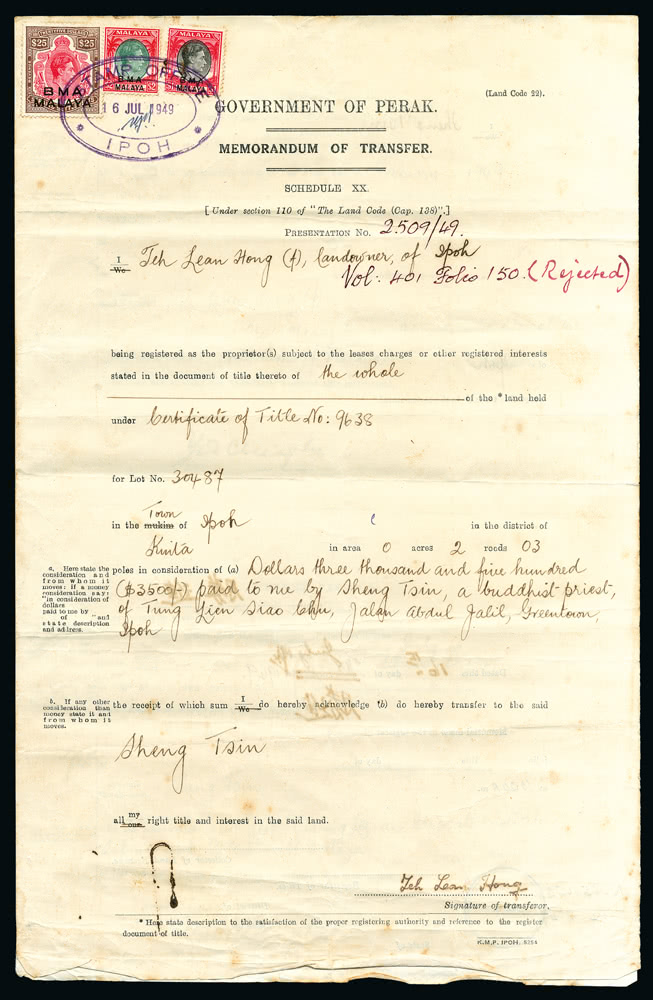 $25 $25
MALAYA MALAYA
BMA
MALAYA
BMA
MALAYA
BMA
MALAYA
STAMP OFFICE
16 JUL 1949
IPOH
(Land Code 22).
GOVERNMENT OF PERAK.
MEMORANDUM OF TRANSFER.
SCHEDULE XX.
[Under section 110 of "The Land Code (Cap. 138)".]
PRESENTATION No. 2509/49.
I
We Teh Lean Hong (f), landowner, of Ipoh
Vol: 401 Folio 150. (Rejected)
being registered as the proprietor(s) subject to the leases charges or other registered interests
stated in the document of title thereto of the whole
of the * land held
under Certificate of Title No: 9638
for Lot No. 30487
in the mukim of Town Ipoh in the district of
Kinta in area 0 acres 2 roods 03
poles in consideration of (a) Dollars three thousand and five hundred
($3500/-) paid to me by Sheng Tsin, a buddhist priest,
of Tung Lien Siao Chu, Jalan Abdul Jalil, Greentown,
Ipoh
a. Here state the
consideration and
from whom it
moves: If a money
consideration say:
"in consideration of
dollars
paid to me by
of " and
state description
and address.
b. If any other
consideration than
money state it and
from whom it
moves.
the receipt of which sum I
We do hereby acknowledge (b) do hereby transfer to the said
Sheng Tsin
all my
our right title and interest in the said land.
Teh Lean Hong
Signature of transferor.
* Here state description to the satisfaction of the proper registering authority and reference to the register
document of title.
K.M.P. IPOH. 8254